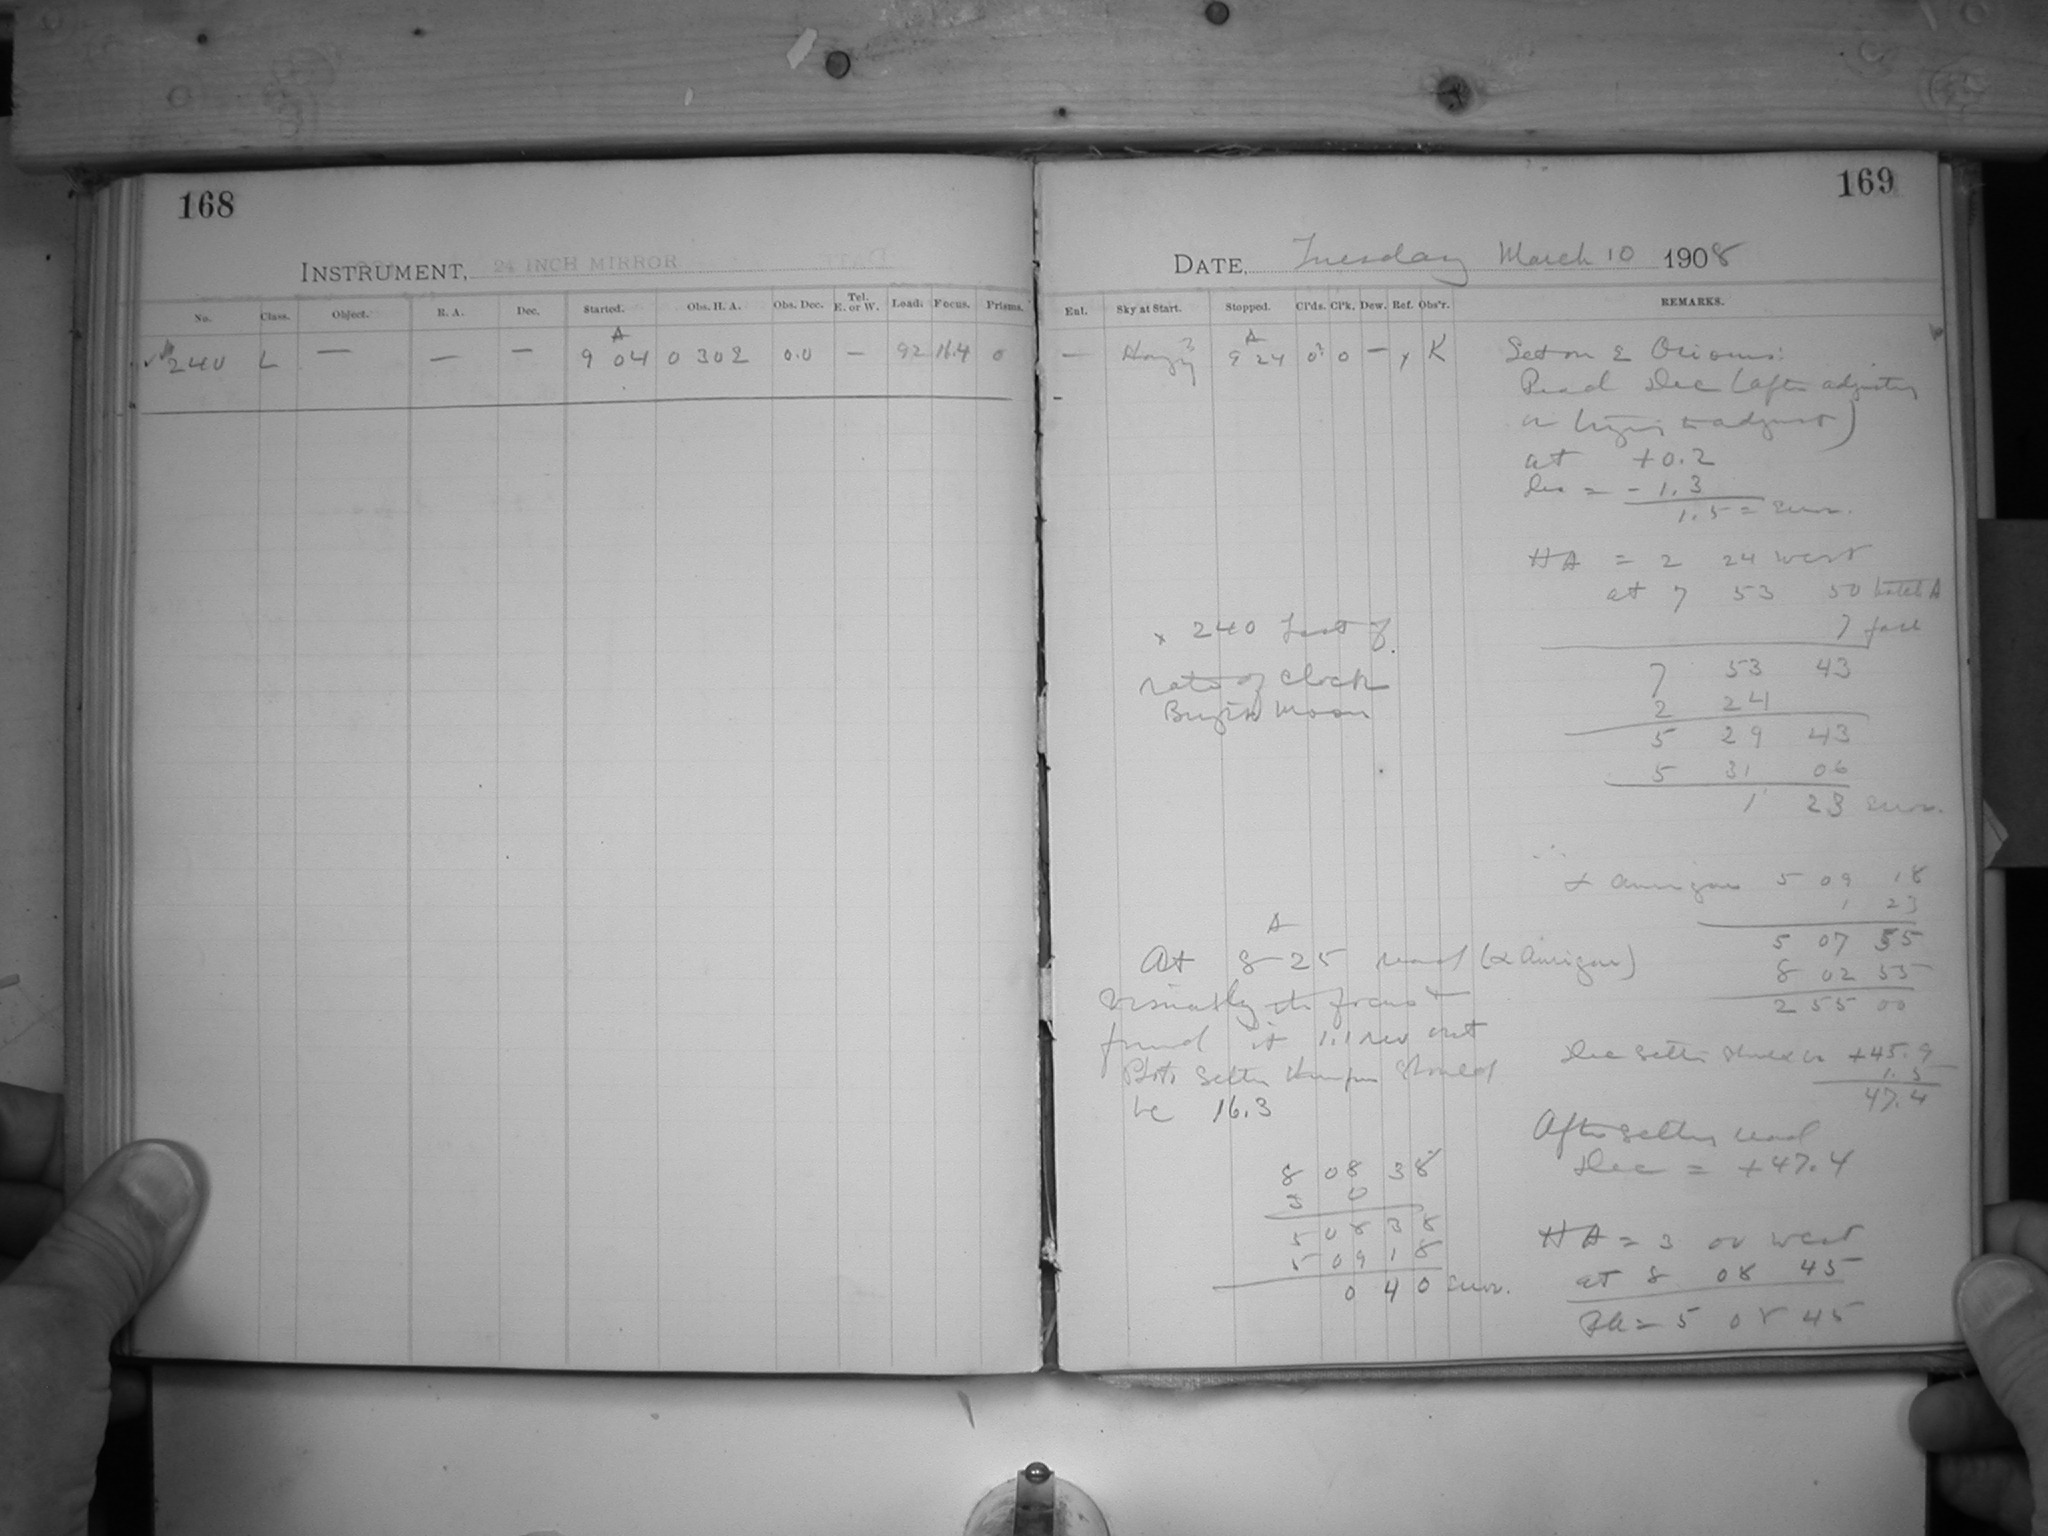 168
INSTRUMENT, 24 INCH MIRROR
No. Class. Object. R. A. Dec. Started. Obs. H. A. Obs. Dec. Tel. E. or W. Load. Focus. Prisms.
A
240 L — — — 9 04 0 302 0.0 — 92 16.4 0
169
DATE, Tuesday March 10 1908
Ent. Sky at Start. Stopped. Cl'ds. Cl'k. Dew. Ref. Obs'r. REMARKS.
A
— Hazy? 9 24 0? 0 — x K
x 240 Test of
rate of clock
Bright Moon
A
At 8 25 read (α Aurigae)
visually the focus +
found it 1.1 rev out
be 16.3
8 08 38
3 0
5 08 38
5 09 18
0 40 error.
Set on ε Orionis:
Read Dec (after adjusting
or trying to adjust)
at +0.2
Dec = - 1.3
1.5 = error.
HA = 2 24 west
at 7 53 50 A
7 fast
7 53 43
2 24
5 29 43
5 31 06
1 23 error.
α Aurigae 5 09 18
1 23
5 07 55
8 02 55
2 55 00
Dec +45.9
1.5
47.4
After setting read
Dec = +47.4
HA = 3 00 west
at 8 08 45
RA = 5 08 45